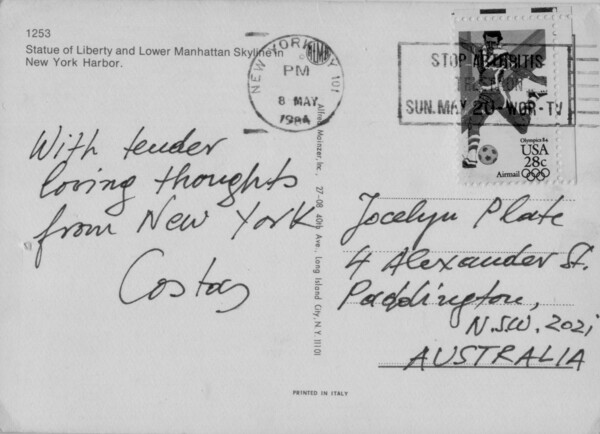 1253
Statue of Liberty and Lower Manhattan Skyline in
New York Harbor.
NEW YORK NY 101
PM
8 MAY
1984
STOP ARTHRITIS
TELETHON
SUN. MAY 20-WOR-TV
Olympics 84
USA
28c
Airmail
With tender
loving thoughts
from New York
Costas
Alfred Mainzer, Inc., 27-08 40th Ave., Long Island City, N.Y. 11101
Jocelyn Plate
4 Alexander St.
Paddington,
N.S.W. 2021
AUSTRALIA
PRINTED IN ITALY